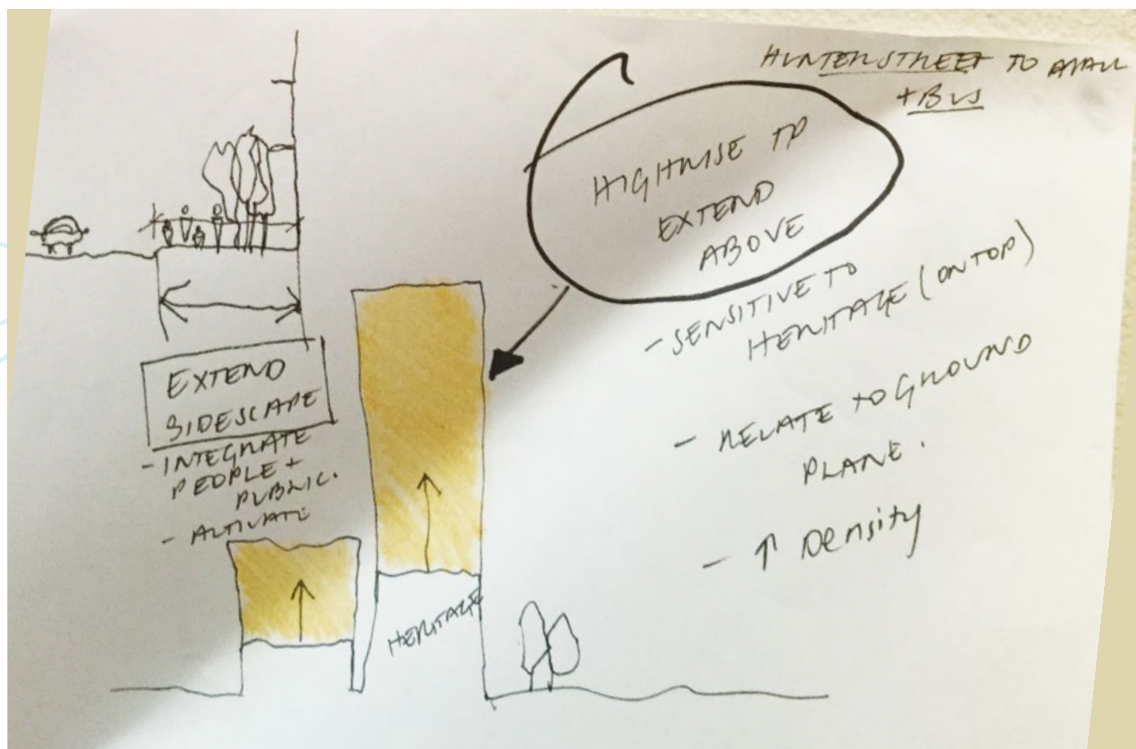 HUNTER STREET TO
+ BUS
HIGHRISE TO
EXTEND
ABOVE
- SENSITIVE TO
HERITAGE (ON TOP)
- RELATE TO GROUND
PLANE.
- ↑ Density
EXTEND
SIDESCAPE
- INTEGRATE
PEOPLE +
PUBLIC.
- ACTIVATE
HERITAGE